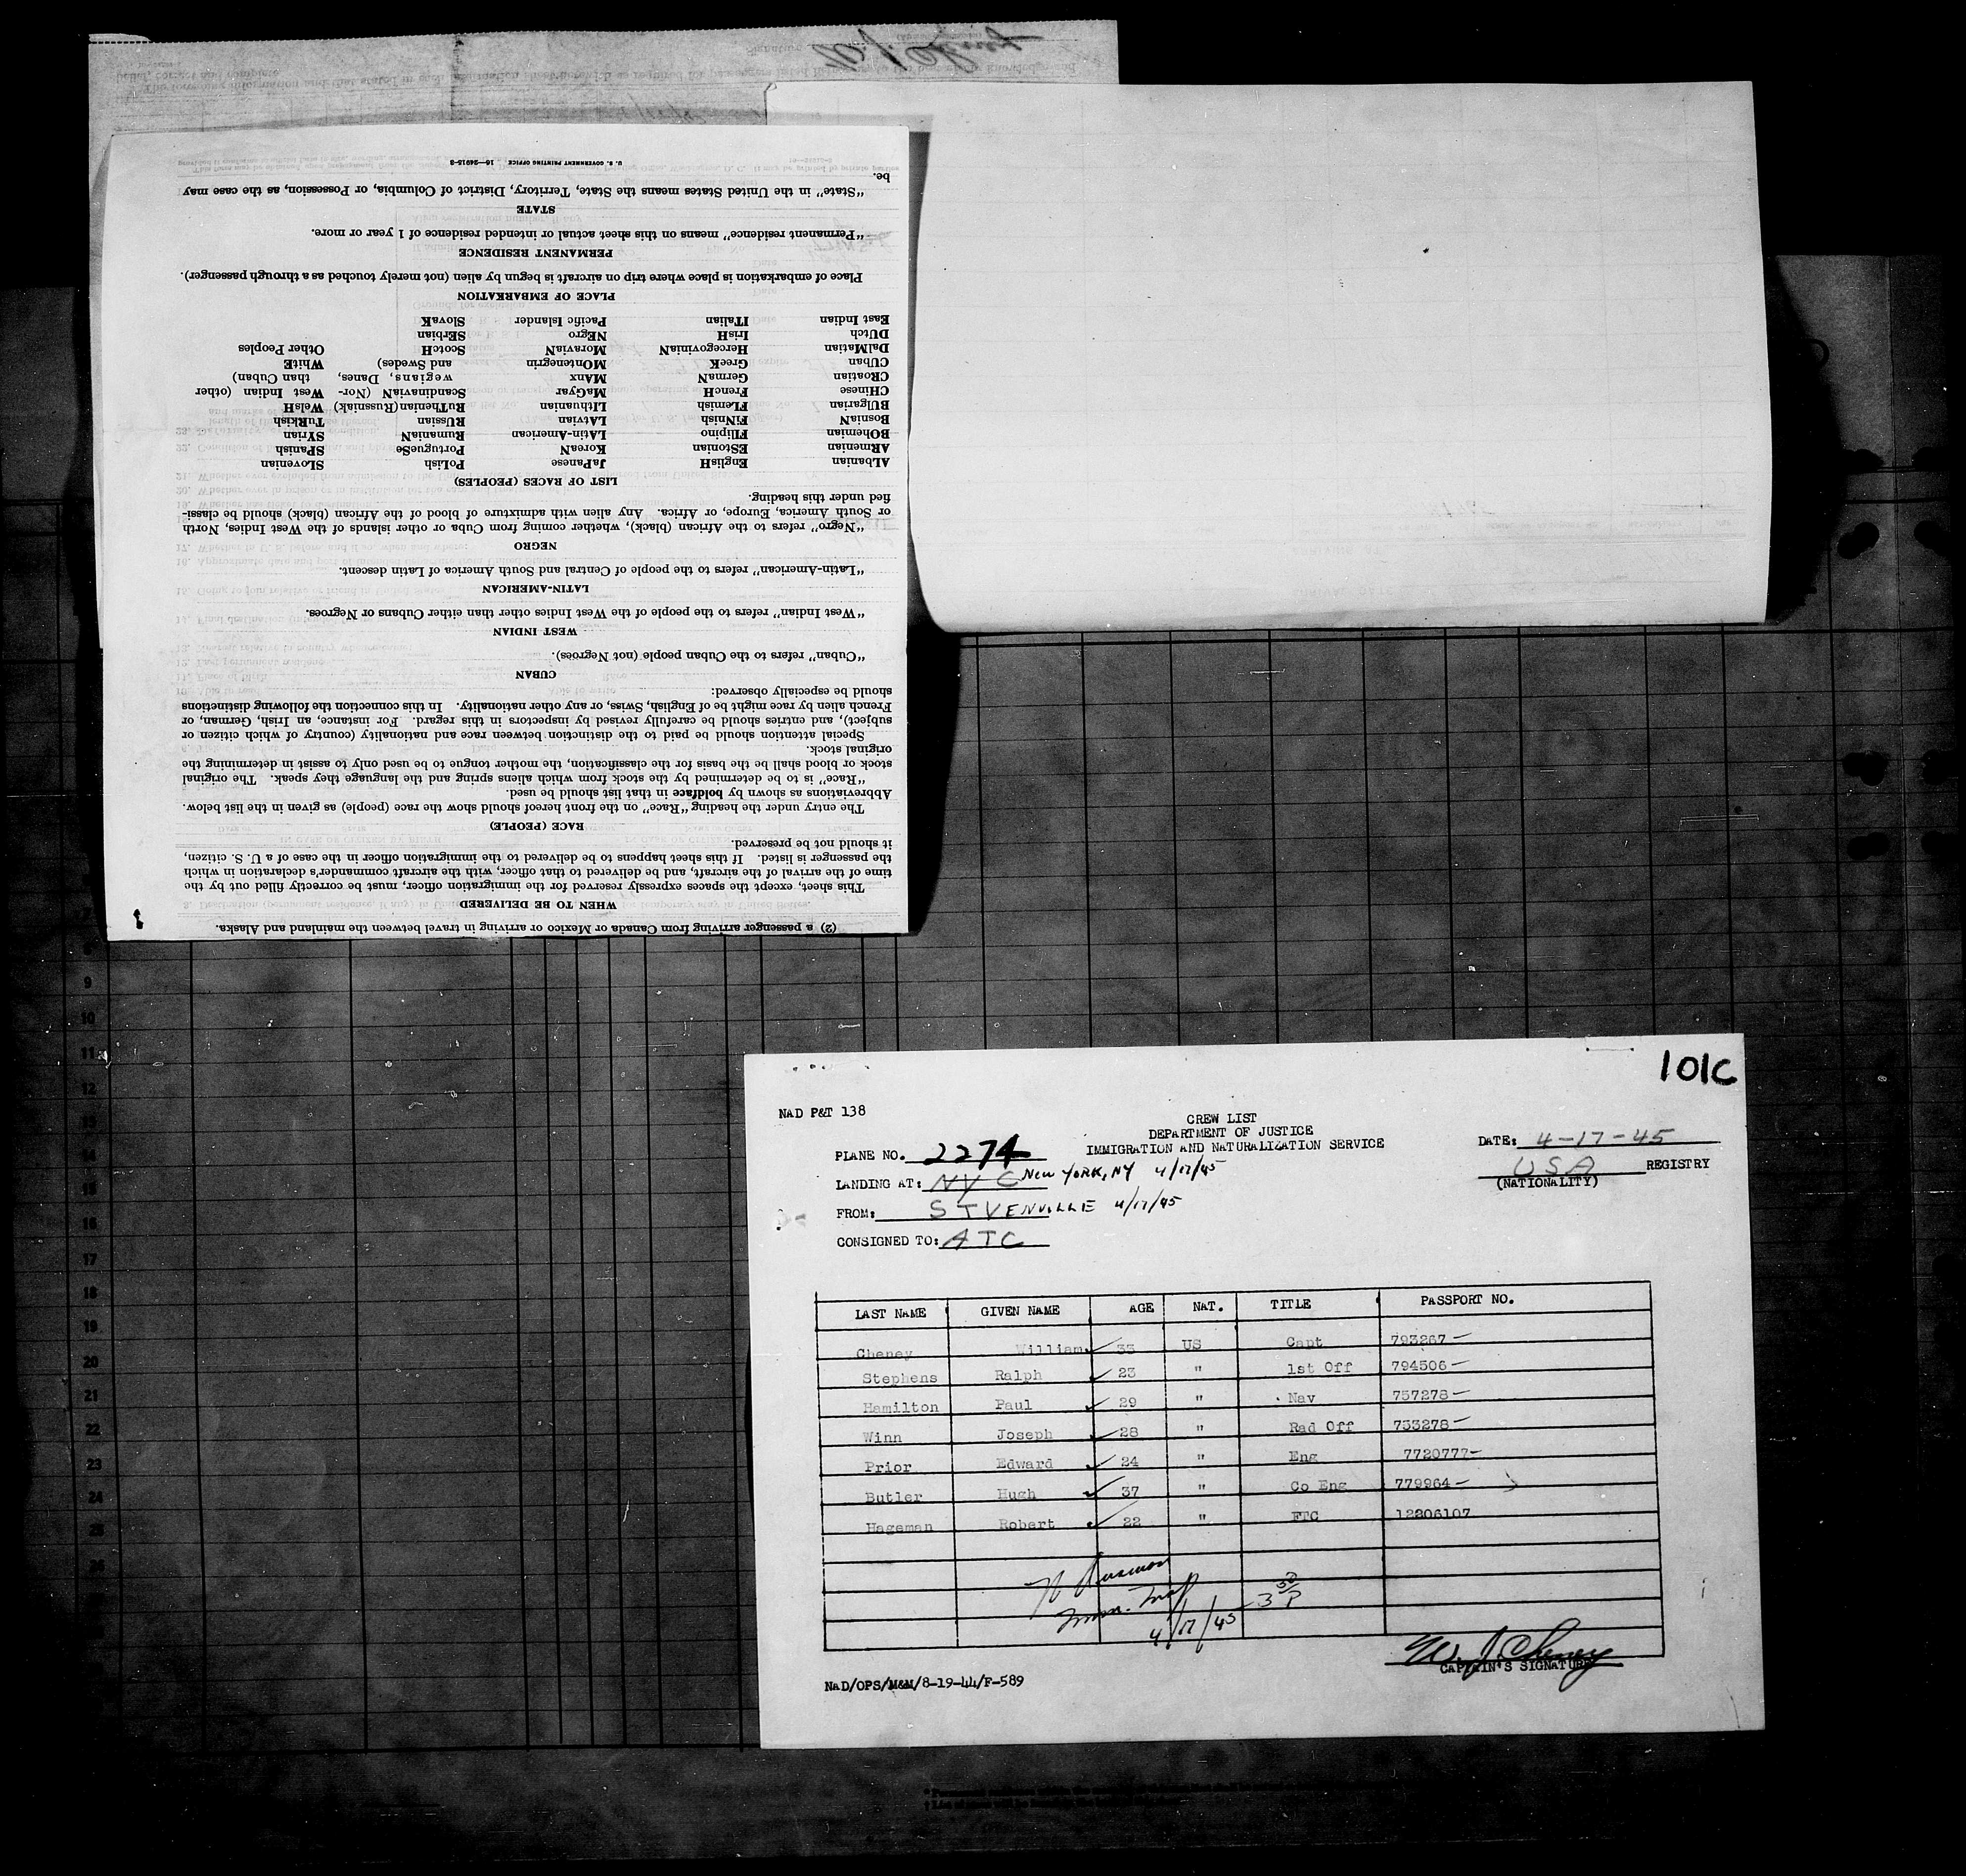 (2) a passenger arriving from Canada or Mexico or arriving in travel between the mainland and Alaska.
WHEN TO BE DELIVERED
This sheet, except the spaces expressly reserved for the immigration officer, must be correctly filled out by the
time of the arrival of the aircraft, and be delivered to that officer, with the aircraft commander's declaration in which
the passenger is listed. If this sheet happens to be delivered to the immigration officer in the case of a U. S. citizen,
it should not be preserved.
RACE (PEOPLE)
The entry under the heading "Race" on the front hereof should show the race (people) as given in the list below.
Abbreviations as shown by boldface in that list should be used.
"Race" is to be determined by the stock from which aliens spring and the language they speak. The original
stock or blood shall be the basis for the classification, the mother tongue to be used only to assist in determining the
original stock.
Special attention should be paid to the distinction between race and nationality (country of which citizen or
subject), and entries should be carefully revised by inspectors in this regard. For instance, an Irish, German, or
French alien by race might be of English, Swiss, or any other nationality. In this connection the following distinctions
should be especially observed:
CUBAN
"Cuban" refers to the Cuban people (not Negroes).
WEST INDIAN
"West Indian" refers to the people of the West Indies other than either Cubans or Negroes.
LATIN-AMERICAN
"Latin-American" refers to the people of Central and South America of Latin descent.
NEGRO
"Negro" refers to the African (black), whether coming from Cuba or other islands of the West Indies, North
or South America, Europe, or Africa. Any alien with admixture of blood of the African (black) should be classi-
fied under this heading.
LIST OF RACES (PEOPLES)
ALbanian EnglisH JaPanese PoLish SLovenian
ARmenian EStonian KoreaN PortugueSe SPanish
BOhemian FIlipino LAtin-American RumaniaN SYrian
BosniaN FiNnish LAtvian RUssian TuRkish
BUlgarian FLemish LIthuanian RuThenian (Russniak) WelsH
CHinese FrencH MaGyar ScandinaviaN (Nor- West Indian (other
CRoatian GermaN MAnx wegians, Danes, than Cuban)
CUban GreeK MOntenegrin and Swedes) WhitE
DalMatian HercegoviniaN MoraviaN ScotcH Other Peoples
DUtch IrisH NEgro SErbian
East Indian ITalian Pacific Islander SlovaK
PLACE OF EMBARKATION
Place of embarkation is place where trip on aircraft is begun by alien (not merely touched as a through passenger).
PERMANENT RESIDENCE
"Permanent residence" means on this sheet actual or intended residence of 1 year or more.
STATE
"State" in the United States means the State, Territory, District of Columbia, or Possession, as the case may
be.
U. S. GOVERNMENT PRINTING OFFICE 16—24915-3
9
10
11
12
13
14
15
16
17
18
19
20
21
22
23
24
25
26
101C
NAD P&T 138
CREW LIST
DEPARTMENT OF JUSTICE
IMMIGRATION AND NATURALIZATION SERVICE
DATE: 4-17-45
PLANE NO. 2274
USA REGISTRY
(NATIONALITY)
LANDING AT: NYC NEW YORK, NY 4/17/45
FROM: STVENVILLE 4/17/45
CONSIGNED TO: ATC
LAST NAME GIVEN NAME AGE NAT. TITLE PASSPORT NO.
Cheney William 33 US Capt 793267
Stephens Ralph 23 " 1st Off 794506
Hamilton Paul 29 " Nav 757278
Winn Joseph 28 " Rad Off 733278
Prior Edward 24 " Eng 7720777
Butler Hugh 37 " Co Eng 779964
Hageman Robert 22 " FTC 12206107
4/17/45 - 3 50 P
W. J. Cheney
CAPTAIN'S SIGNATURE
NAD/OPS/M&M/8-19-44/F-589